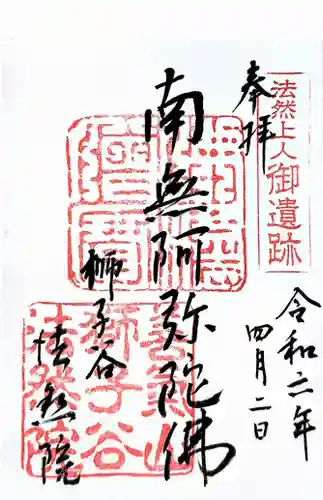 法然上人御遺跡
奉拝
令和二年
四月二日
南無阿弥陀佛
獅子谷
法然院
善氣山
獅子谷
法然院